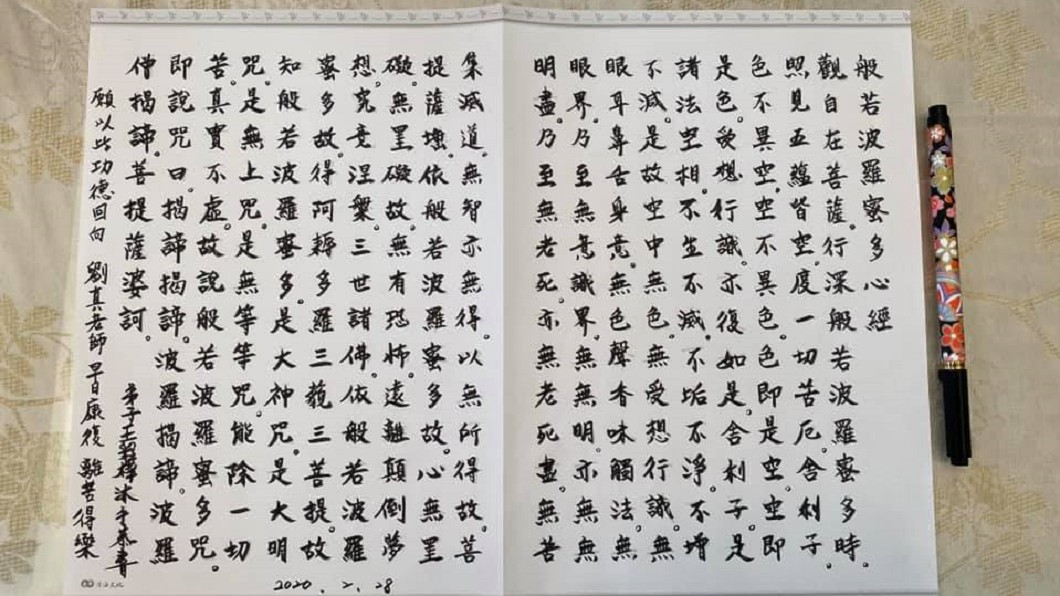 般若波羅蜜多心經
觀自在菩薩。行深般若波羅蜜多時。
照見五蘊皆空。度一切苦厄。舍利子
色不異空。空不異色。色即是空。空即
是色。受想行識。亦復如是。舍利子。是
諸法空相。不生不滅。不垢不淨。不增
不減。是故空中無色。無受想行識。無
眼耳鼻舌身意。無色聲香味觸法。無
眼界。乃至無意識界。無無明。亦無無
明盡。乃至無老死。亦無老死盡。無苦
集滅道。無智亦無得。以無所得故。菩
提薩埵。依般若波羅蜜多故。心無罣
礙。無罣礙故。無有恐怖。遠離顛倒夢
想。究竟涅槃。三世諸佛。依般若波羅
蜜多故。得阿耨多羅三藐三菩提。故
知般若波羅蜜多。是大神咒。是大明
咒。是無上咒。是無等等咒。能除一切
苦。真實不虛。故說般若波羅蜜多咒。
即說咒曰。揭諦揭諦。波羅揭諦。波羅
僧揭諦。菩提薩婆訶。
弟子 沐手恭書
願以此功德回向 劉真老師 早日康復 離苦得樂
2020.2.28